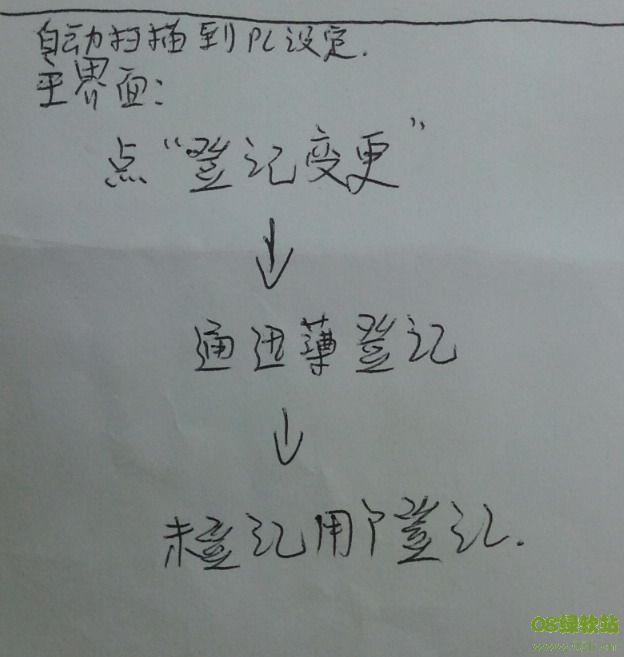 自动扫描到PC设定.
主界面:
点“登记变更”
↓
通迅薄登记
↓
未登记用户登记.
OS绿软站